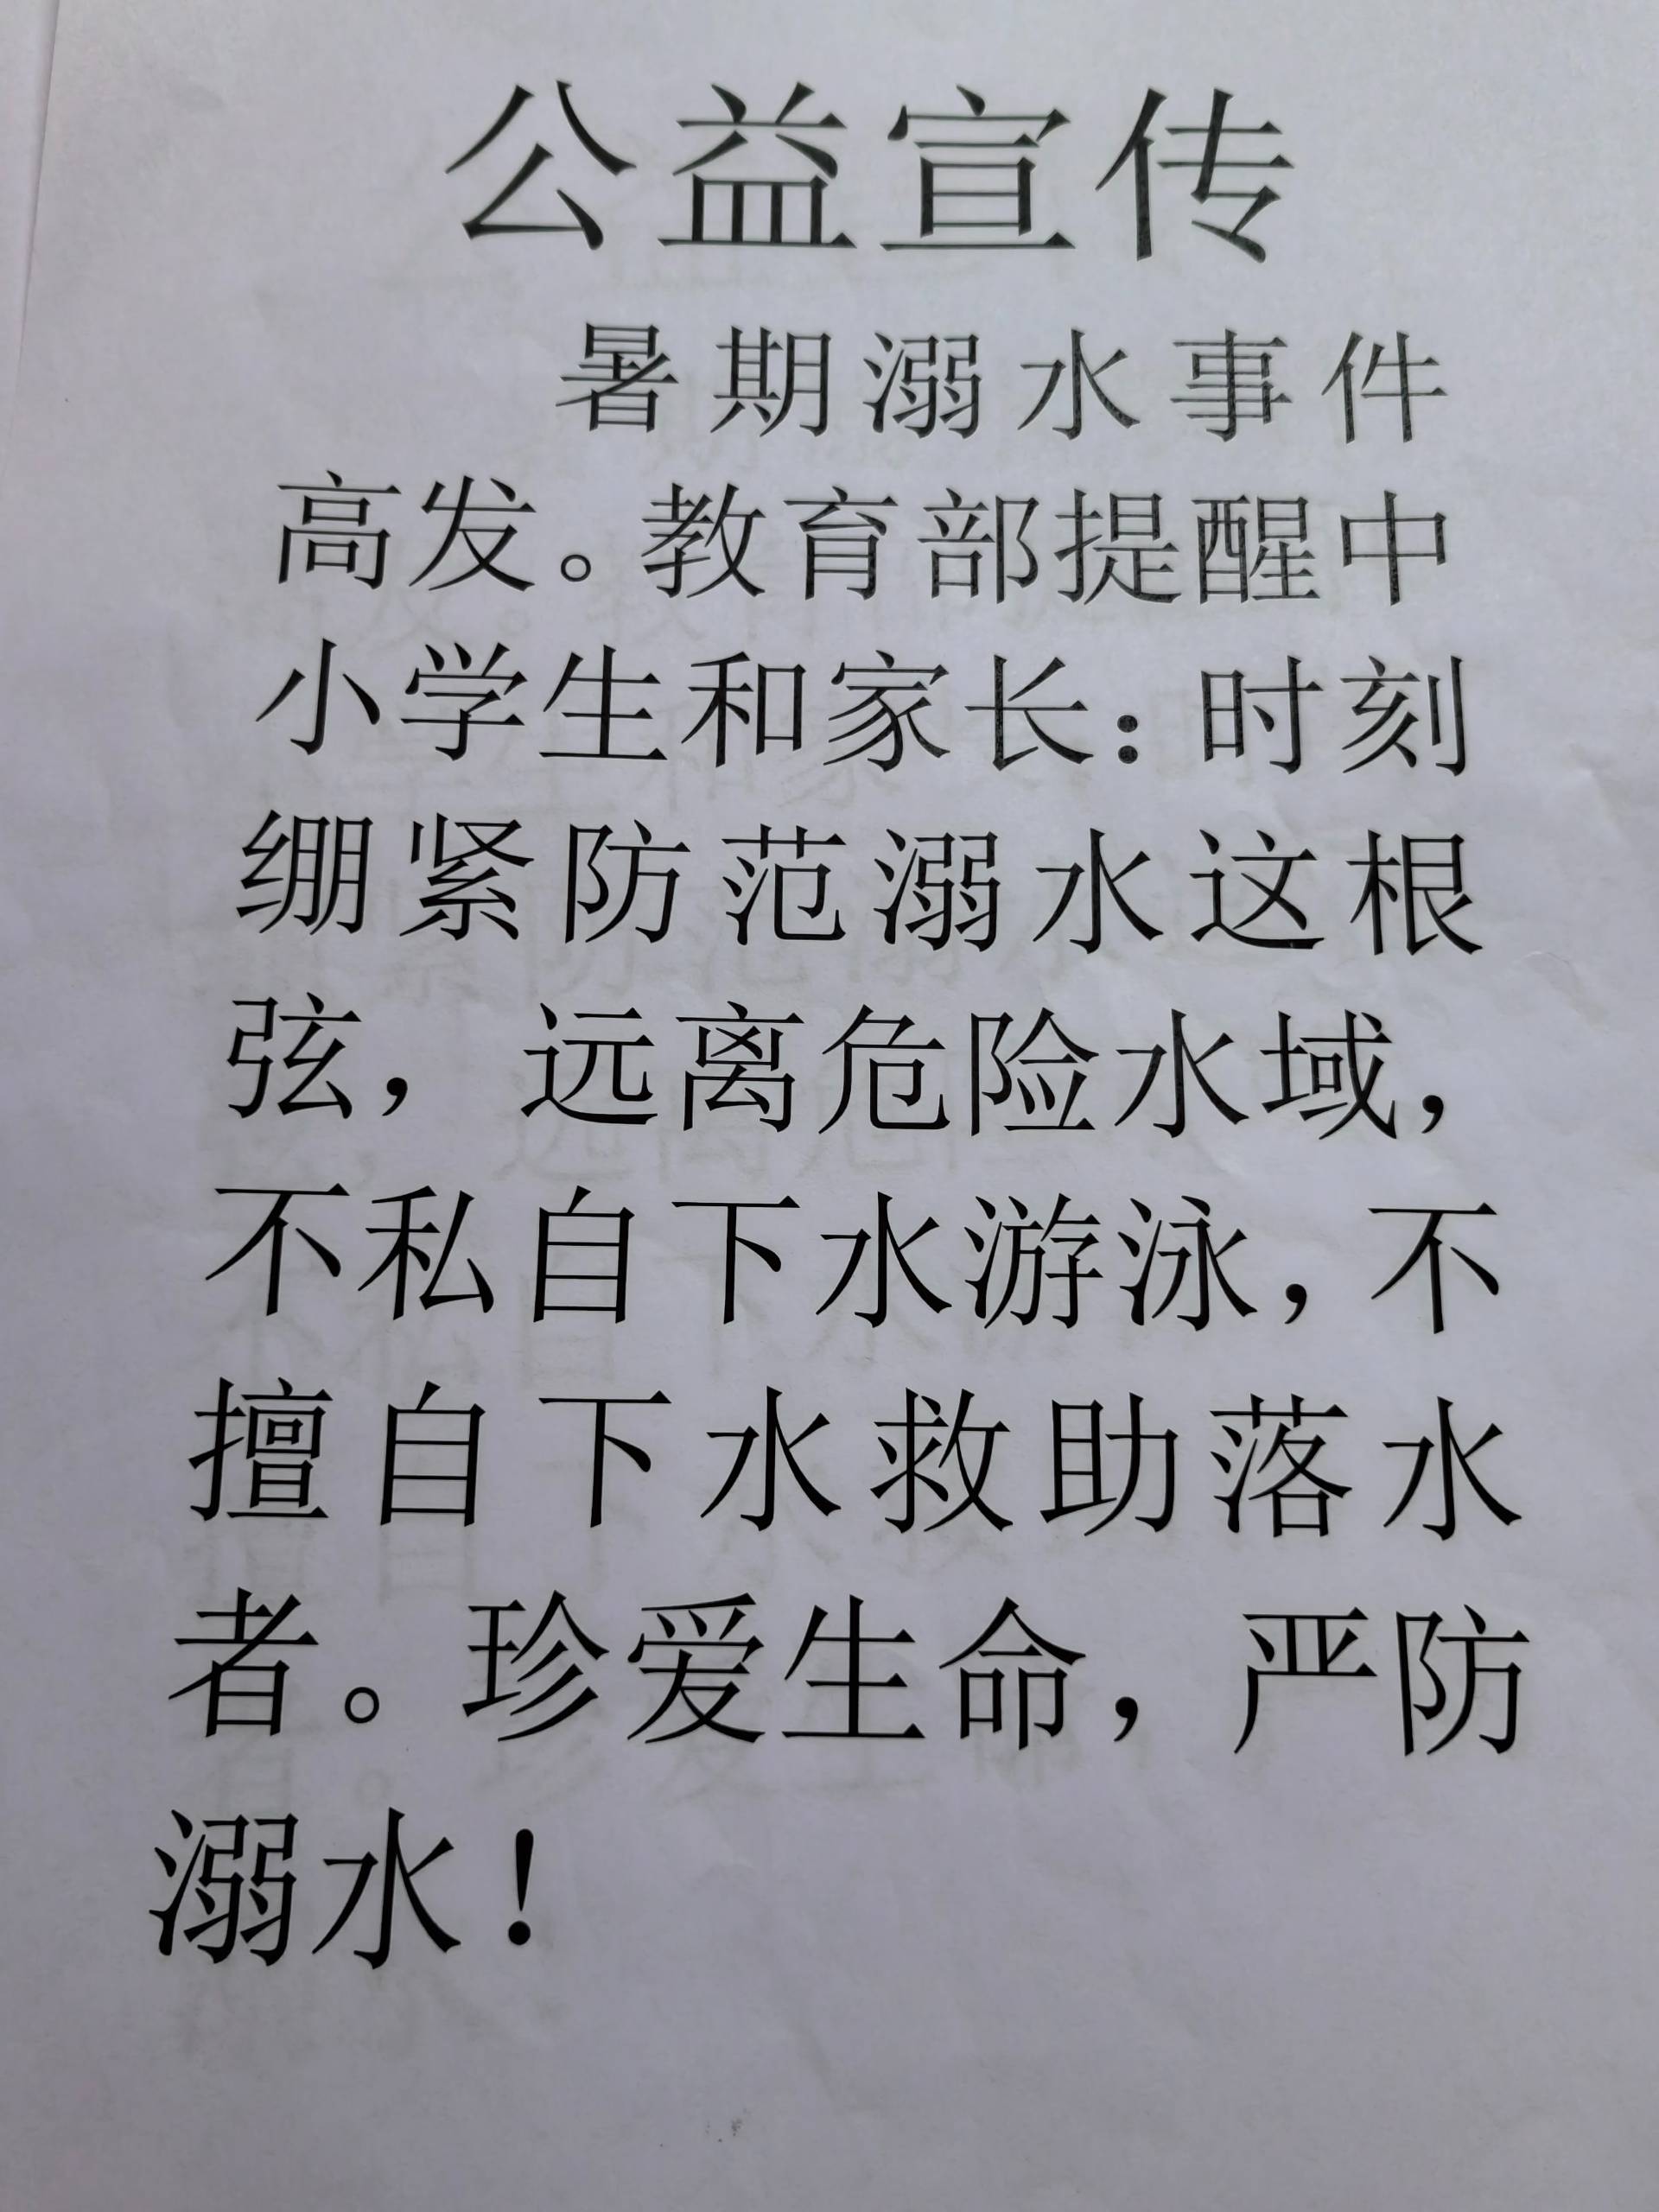 公益宣传
暑期溺水事件
高发。教育部提醒中
小学生和家长：时刻
绷紧防范溺水这根
弦，远离危险水域，
不私自下水游泳，不
擅自下水救助落水
者。珍爱生命，严防
溺水！